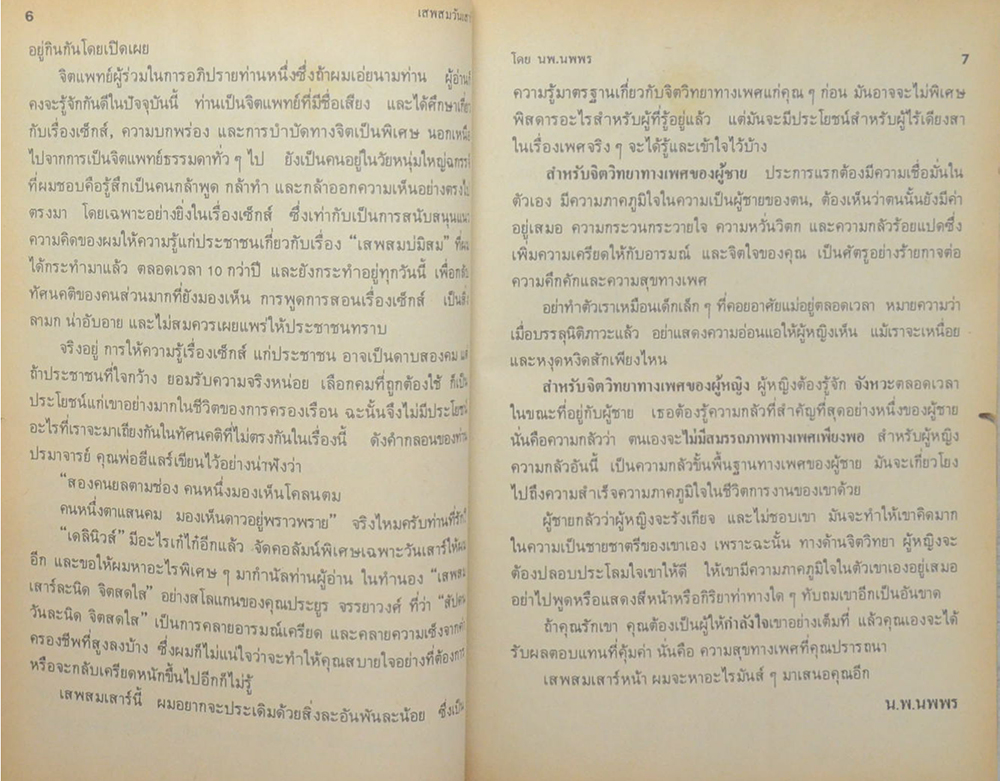 6
เสพสมวันเสา
อยู่กินกันโดยเปิดเผย
จิตแพทย์ผู้ร่วมในการอภิปรายท่านหนึ่งซึ่งถ้าผมเอ่ยนามท่าน ผู้อ่าน
คงจะรู้จักกันดีในปัจจุบันนี้ ท่านเป็นจิตแพทย์ที่มีชื่อเสียง และได้ศึกษาเกี่ย
กับเรื่องเซ็กส์, ความบกพร่อง และการบำบัดทางจิตเป็นพิเศษ นอกเหนื
ไปจากการเป็นจิตแพทย์ธรรมดาทั่ว ๆ ไป ยังเป็นคนอยู่ในวัยหนุ่มใหญ่ฉกรร
ที่ผมชอบคือรู้สึกเป็นคนกล้าพูด กล้าทำ และกล้าออกความเห็นอย่างตรงไ
ตรงมา โดยเฉพาะอย่างยิ่งในเรื่องเซ็กส์ ซึ่งเท่ากับเป็นการสนับสนุนแน
ความคิดของผมให้ความรู้แก่ประชาชนเกี่ยวกับเรื่อง “เสพสมบ่มิสม” ที่ผม
ได้กระทำมาแล้ว ตลอดเวลา 10 กว่าปี และยังกระทำอยู่ทุกวันนี้ เพื่อ
ทัศนคติของคนส่วนมากที่ยังมองเห็น การพูดการสอนเรื่องเซ็กส์ เป็นสิ่
ลามก น่าอับอาย และไม่สมควรเผยแพร่ให้ประชาชนทราบ
จริงอยู่ การให้ความรู้เรื่องเซ็กส์ แก่ประชาชน อาจเป็นดาบสองคม
ถ้าประชาชนที่ใจกว้าง ยอมรับความจริงหน่อย เลือกคมที่ถูกต้องใช้ ก็เป็น
ประโยชน์แก่เขาอย่างมากในชีวิตของการครองเรือน ฉะนั้นจึงไม่มีประโยชน์
อะไรที่เราจะมาเถียงกันในทัศนคติที่ไม่ตรงกันในเรื่องนี้ ดังคำกลอนของท่าน
ปรมาจารย์ คุณพ่อฮีแลร์เขียนไว้อย่างน่าฟังว่า
“สองคนยลตามช่อง คนหนึ่งมองเห็นโคลนตม
คนหนึ่งตาแสนคม มองเห็นดาวอยู่พราวพราย” จริงไหมครับท่านที่รัก
“เดลินิวส์” มีอะไรเก๋ไก๋อีกแล้ว จัดคอลัมน์พิเศษเฉพาะวันเสาร์ให้ผม
อีก และขอให้ผมหาอะไรพิเศษ ๆ มากำนัลท่านผู้อ่าน ในทำนอง “เสพสม
เสาร์ละนิด จิตสดใส” อย่างสโลแกนของคุณประยูร จรรยาวงศ์ ที่ว่า “สัปดน
วันละนิด จิตสดใส” เป็นการคลายอารมณ์เครียด และคลายความเซ็งจากค่า
ครองชีพที่สูงลงบ้าง ซึ่งผมก็ไม่แน่ใจว่าจะทำให้คุณสบายใจอย่างที่ต้องการ
หรือจะกลับเครียดหนักขึ้นไปอีกก็ไม่รู้
เสพสมเสาร์นี้ ผมอยากจะประเดิมด้วยสิ่งละอันพันละน้อย ซึ่งเป็น
โดย นพ.นพพร
7
ความรู้มาตรฐานเกี่ยวกับจิตวิทยาทางเพศแก่คุณ ๆ ก่อน มันอาจจะไม่พิเศษ
พิสดารอะไรสำหรับผู้ที่รู้อยู่แล้ว แต่มันจะมีประโยชน์สำหรับผู้ไร้เดียงสา
ในเรื่องเพศจริง ๆ จะได้รู้และเข้าใจไว้บ้าง
สำหรับจิตวิทยาทางเพศของผู้ชาย ประการแรกต้องมีความเชื่อมั่นใน
ตัวเอง มีความภาคภูมิใจในความเป็นผู้ชายของตน, ต้องเห็นว่าตนนั้นยังมีค่า
อยู่เสมอ ความกระวนกระวายใจ ความหวั่นวิตก และความกลัวร้อยแปดซึ่ง
เพิ่มความเครียดให้กับอารมณ์ และจิตใจของคุณ เป็นศัตรูอย่างร้ายกาจต่อ
ความคึกคักและความสุขทางเพศ
อย่าทำตัวเราเหมือนเด็กเล็ก ๆ ที่คอยอาศัยแม่อยู่ตลอดเวลา หมายความว่า
เมื่อบรรลุนิติภาวะแล้ว อย่าแสดงความอ่อนแอให้ผู้หญิงเห็น แม้เราจะเหนื่อย
และหงุดหงิดสักเพียงไหน
สำหรับจิตวิทยาทางเพศของผู้หญิง ผู้หญิงต้องรู้จัก จังหวะตลอดเวลา
ในขณะที่อยู่กับผู้ชาย เธอต้องรู้ความกลัวที่สำคัญที่สุดอย่างหนึ่งของผู้ชาย
นั่นคือความกลัวว่า ตนเองจะไม่มีสมรรถภาพทางเพศเพียงพอ สำหรับผู้หญิง
ความกลัวอันนี้ เป็นความกลัวขั้นพื้นฐานทางเพศของผู้ชาย มันจะเกี่ยวโยง
ไปถึงความสำเร็จความภาคภูมิใจในชีวิตการงานของเขาด้วย
ผู้ชายกลัวว่าผู้หญิงจะรังเกียจ และไม่ชอบเขา มันจะทำให้เขาคิดมาก
ในความเป็นชายชาตรีของเขาเอง เพราะฉะนั้น ทางด้านจิตวิทยา ผู้หญิงจะ
ต้องปลอบประโลมใจเขาให้ดี ให้เขามีความภาคภูมิใจในตัวเขาเองอยู่เสมอ
อย่าไปพูดหรือแสดงสีหน้าหรือกิริยาท่าทางใด ๆ ทับถมเขาอีกเป็นอันขาด
ถ้าคุณรักเขา คุณต้องเป็นผู้ให้กำลังใจเขาอย่างเต็มที่ แล้วคุณเองจะได้
รับผลตอบแทนที่คุ้มค่า นั่นคือ ความสุขทางเพศที่คุณปรารถนา
เสพสมเสาร์หน้า ผมจะหาอะไรมันส์ ๆ มาเสนอคุณอีก
น.พ.นพพร